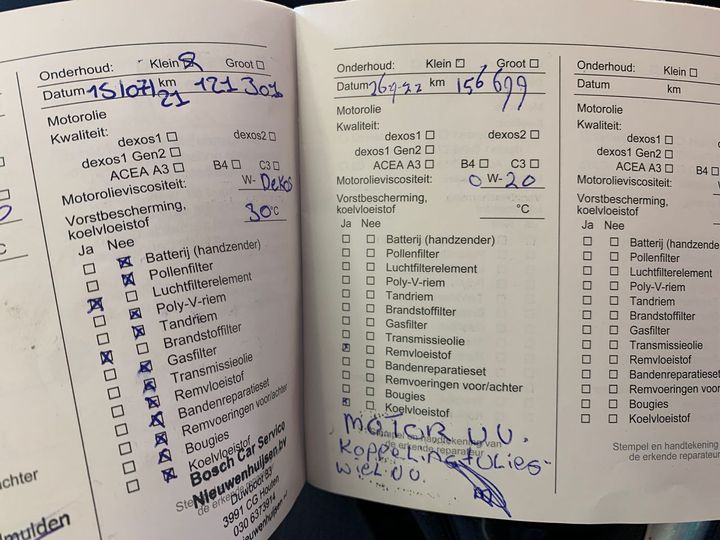 Onderhoud: Klein Groot
Datum 15/07/21 km 121 301
Motorolie
Kwaliteit:
dexos1 dexos2
dexos1 Gen2
ACEA A3 B4 C3
Motorolieviscositeit: W- Dexos
Vorstbescherming,
koelvloeistof 30 °C
Ja Nee
Batterij (handzender)
Pollenfilter
Luchtfilterelement
Poly-V-riem
Tandriem
Brandstoffilter
Gasfilter
Transmissieolie
Remvloeistof
Bandenreparatieset
Remvoeringen voor/achter
Bougies
Koelvloeistof
Bosch Car Service
Nieuwenhuijsen bv
de erkende
3991 CG Houten
030 6373914
chter
mulden
Onderhoud: Klein Groot
Datum km 156 699
Motorolie
Kwaliteit:
dexos1 dexos2
dexos1 Gen2
ACEA A3 B4 C3
Motorolieviscositeit: 0 W- 20
Vorstbescherming,
koelvloeistof °C
Ja Nee
Batterij (handzender)
Pollenfilter
Luchtfilterelement
Poly-V-riem
Tandriem
Brandstoffilter
Gasfilter
Transmissieolie
Remvloeistof
Bandenreparatieset
Remvoeringen voor/achter
Bougies
Koelvloeistof
Stempel en handtekening van
de erkende reparateur
MOTOR VV.
KOPPELING
WIEL
Onderhoud: Klein
Datum km
Motorolie
Kwaliteit:
dexos1
dexos1 Gen2
ACEA A3 B4
Motorolieviscositeit: W
Vorstbescherming,
koelvloeistof
Ja Nee
Batterij (handzende
Pollenfilter
Luchtfilterelement
Poly-V-riem
Tandriem
Brandstoffilter
Gasfilter
Transmissieolie
Remvloeistof
Bandenreparatieset
Remvoeringen voor
Bougies
Koelvloeistof
Stempel en handtekening
de erkende reparateur